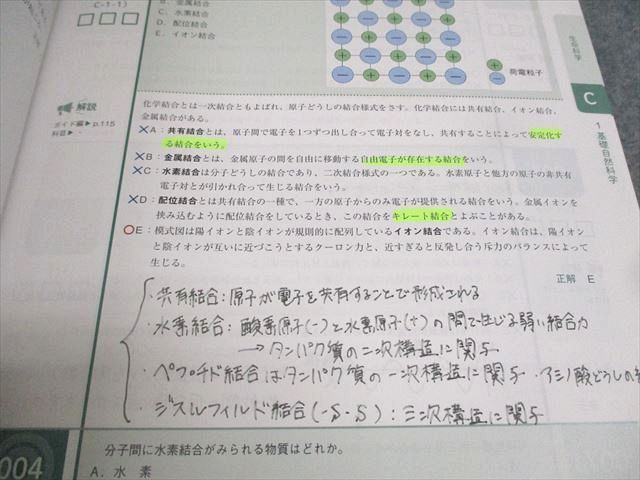 C-1-1)
B. 金属結合
C. 水素結合
D. 配位結合
E. イオン結合
荷電粒子
生命科学
C
1. 基礎自然科学
解説
ガイド編▶p.115
科目▶
化学結合とは一次結合ともよばれ、原子どうしの結合様式をさす。化学結合には共有結合、イオン結合、
金属結合がある。
×A：共有結合とは、原子間で電子を1つずつ出し合って電子対をなし、共有することによって安定化す
る結合をいう。
×B：金属結合とは、金属原子の間を自由に移動する自由電子が存在する結合をいう。
×C：水素結合は分子どうしの結合であり、二次結合様式の一つである。水素原子と他方の原子の非共有
電子対とが引かれ合って生じる結合をいう。
×D：配位結合とは共有結合の一種で、一方の原子からのみ電子が提供される結合をいう。金属イオンを
挟み込むように配位結合をしているとき、この結合をキレート結合とよぶことがある。
○E：模式図は陽イオンと陰イオンが規則的に配列しているイオン結合である。イオン結合は、陽イオン
と陰イオンが互いに近づこうとするクーロン力と、近すぎると反発し合う斥力のバランスによって
生じる。
正解 E
・共有結合：原子が電子を共有することで形成される
・水素結合：酸素原子(-)と水素原子(+)の間で生じる弱い結合力
→タンパク質の二次構造に関与
・ペプチド結合はタンパク質の一次構造に関与 ・アミノ酸どうしの
・ジスルフィルド結合(-S-S)：三次構造に関与
004
分子間に水素結合がみられる物質はどれか。
A. 水 素